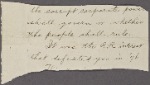 the corrupt corporate power
shall govern or whether
the people shall rule.
It was the R.R. interest
that defeated you in 96